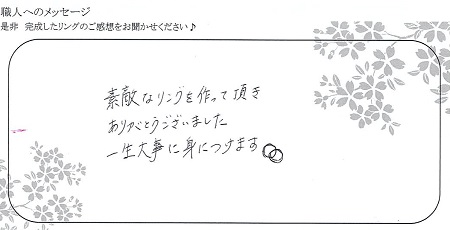 職人へのメッセージ
是非 完成したリングのご感想をお聞かせください♪
素敵なリングを作って頂き
ありがとうございました
一生大事に身につけます